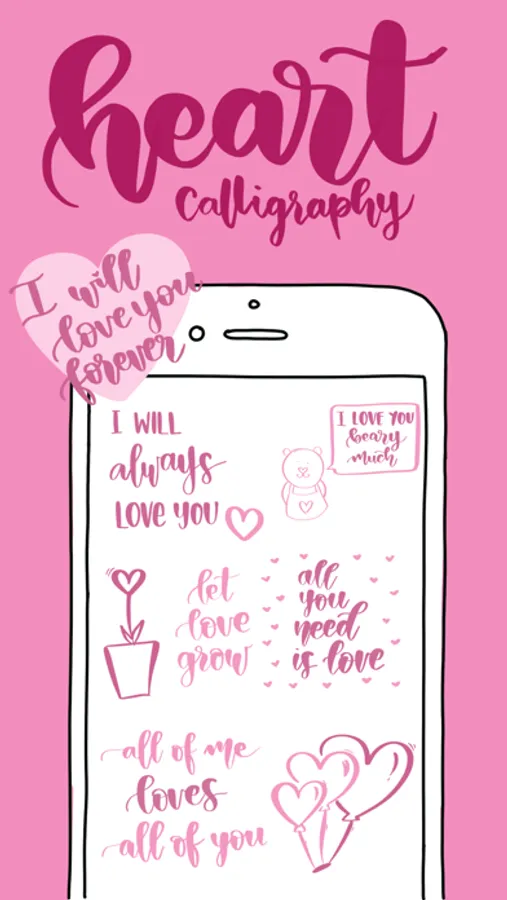 heart
Calligraphy
I will
love you
forever
I WILL
always
LOVE YOU
I LOVE YOU
beary
much
let
love
grow
all
you
need
is love
all of me
loves
all of you